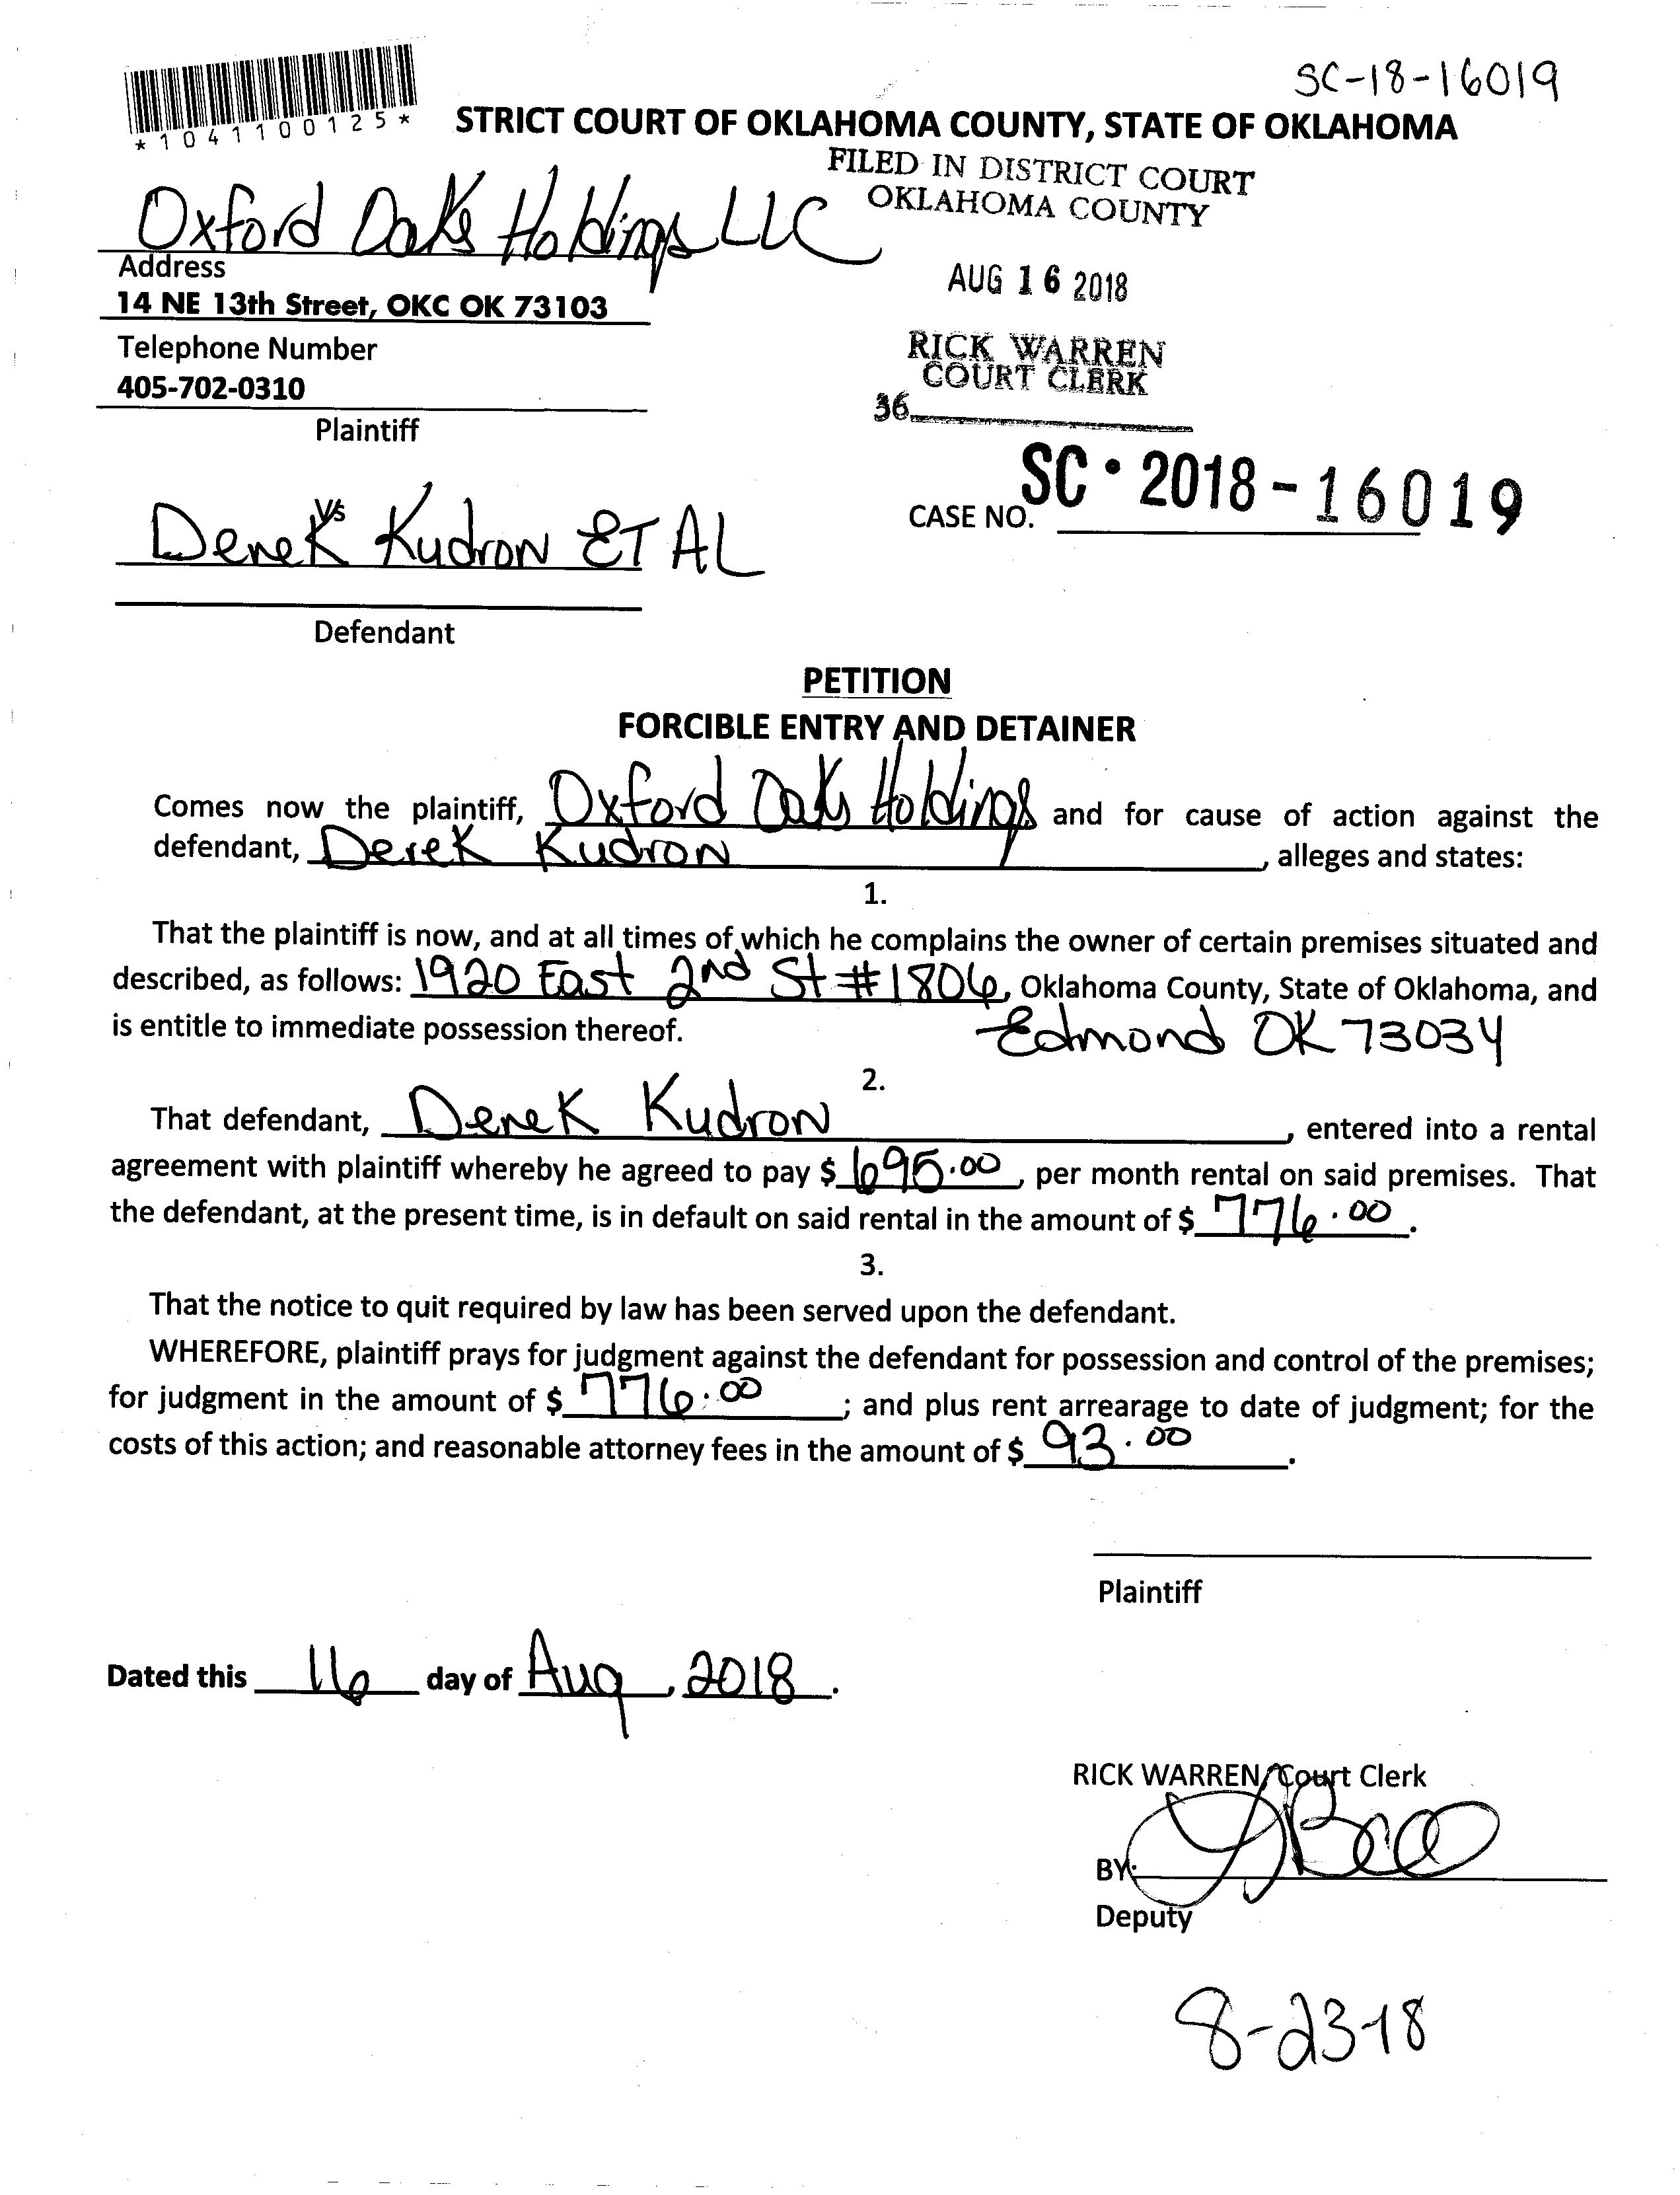 SC-18-16019
*1041100125*
STRICT COURT OF OKLAHOMA COUNTY, STATE OF OKLAHOMA
FILED IN DISTRICT COURT
OKLAHOMA COUNTY
Oxford Oaks Holdings LLC
Address
14 NE 13th Street, OKC OK 73103
AUG 16 2018
Telephone Number
405-702-0310
RICK WARREN
COURT CLERK
36
Plaintiff
SC • 2018 - 16019
CASE NO.
Vs
Derek Kudron ET AL
Defendant
PETITION
FORCIBLE ENTRY AND DETAINER
Comes now the plaintiff, Oxford Oaks Holdings and for cause of action against the
defendant, Derek Kudron, alleges and states:
1.
That the plaintiff is now, and at all times of which he complains the owner of certain premises situated and
described, as follows: 1920 East 2nd St #1806, Oklahoma County, State of Oklahoma, and
is entitle to immediate possession thereof. Edmond OK 73034
2.
That defendant, Derek Kudron, entered into a rental
agreement with plaintiff whereby he agreed to pay $ 695.00, per month rental on said premises. That
the defendant, at the present time, is in default on said rental in the amount of $ 776.00.
3.
That the notice to quit required by law has been served upon the defendant.
WHEREFORE, plaintiff prays for judgment against the defendant for possession and control of the premises;
for judgment in the amount of $ 776.00; and plus rent arrearage to date of judgment; for the
costs of this action; and reasonable attorney fees in the amount of $ 93.00.
Plaintiff
Dated this 16 day of Aug, 2018.
RICK WARREN, Court Clerk
BY:
Deputy
8-23-18